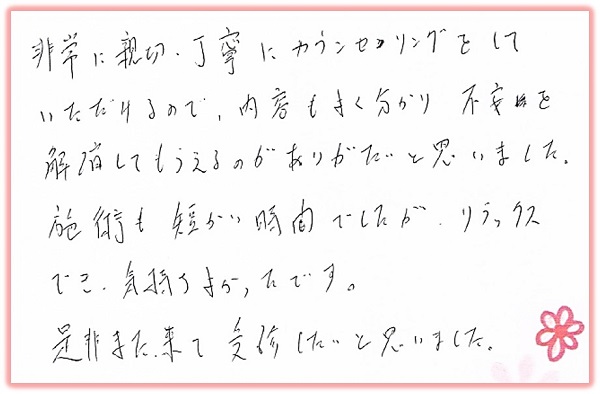 非常に親切、丁寧にカウンセリングをして
いただけるので、内容もよく分かり 不安を
解消してもらえるのがありがたいと思いました。
施術も短かい時間でしたが、リラックス
でき、気持ちよかったです。
是非また、来て受診したいと思いました。